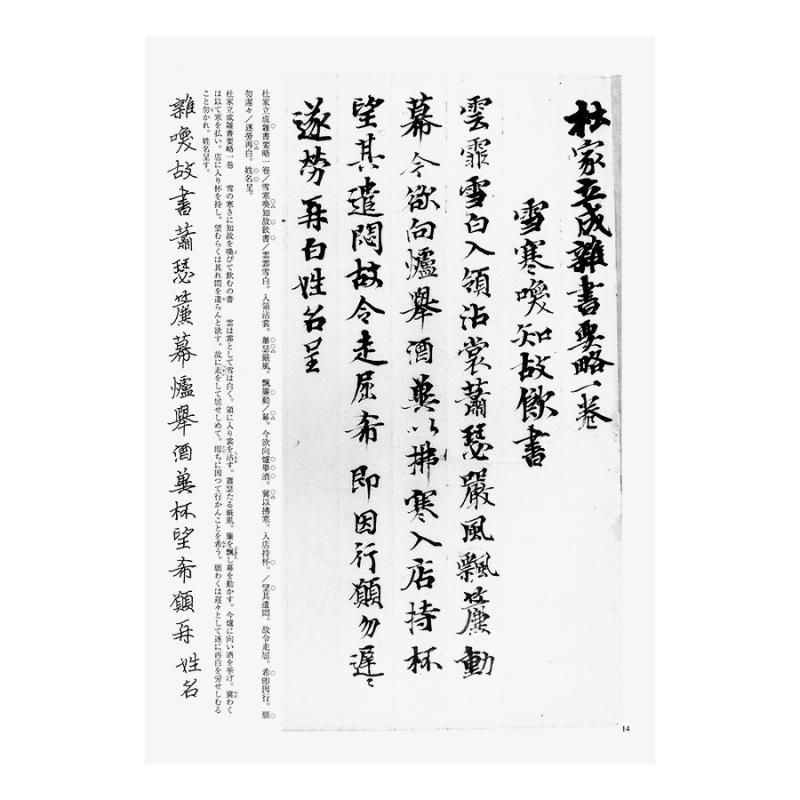 杜家立成雜書要略一卷
雪寒喚知故飲書
雲霏雪白入領沾裳蕭瑟嚴風飄簾動
幕今欲向爐舉酒冀以拂寒入店持杯
望其遣悶故令走屈希即因行願勿遲〻
遂勞再白姓名呈
杜家立成雑書要略一巻／雪寒喚知故飲書／雲霏雪白。入領沾裳。蕭瑟厳風。飄簾動／幕。今欲向爐挙酒。冀以拂寒。入店持杯。／望其遣悶。故令走屈。希即因行。願
勿遅々／遂労再白。姓名呈。
杜家立成雑書要略一巻　雪の寒きに知故を喚びて飲むの書　雲は霏として雪は白く。領に入り裳を沾す。蕭瑟たる厳風。簾を飄し幕を動かす。今爐に向い酒を挙げ。冀わく
は以て寒を払い。店に入り杯を持し。望むらくは其れ悶を遣らんと欲す。故に走をして屈せしめて。即ちに因つて行かんことを希う。願わくは遅々として遂に再白を労せしむる
こと勿かれ。姓名呈す。
雜喚故書蕭瑟簾幕爐舉酒冀杯望希願再姓名
14